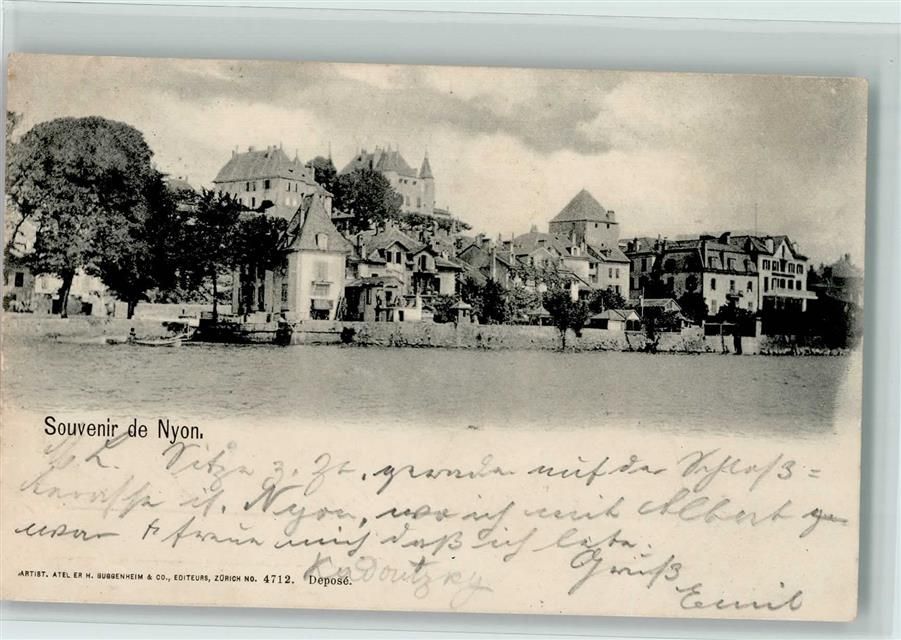 Souvenir de Nyon.
M. L. Sitze z. Zt. gerade auf der Schloß=
terasse in Nyon, wo ich mit Albert ge-
war & freue mich daß ich lebe.
Gruß
Emil
ARTIST. ATELIER H. GUGGENHEIM & CO., EDITEURS, ZÜRICH NO. 4712. Deposé.